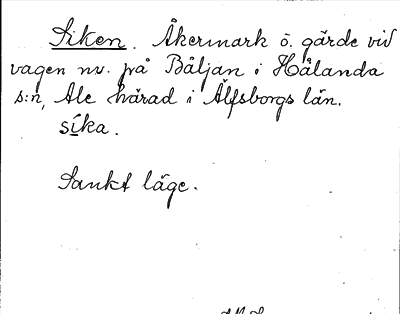 Siken. Åkermark ö. gärde vid
vagen nv. på Båljan i Hålanda
s:n, Ale härad i Älfsborgs län.
síka.
Sankt läge.